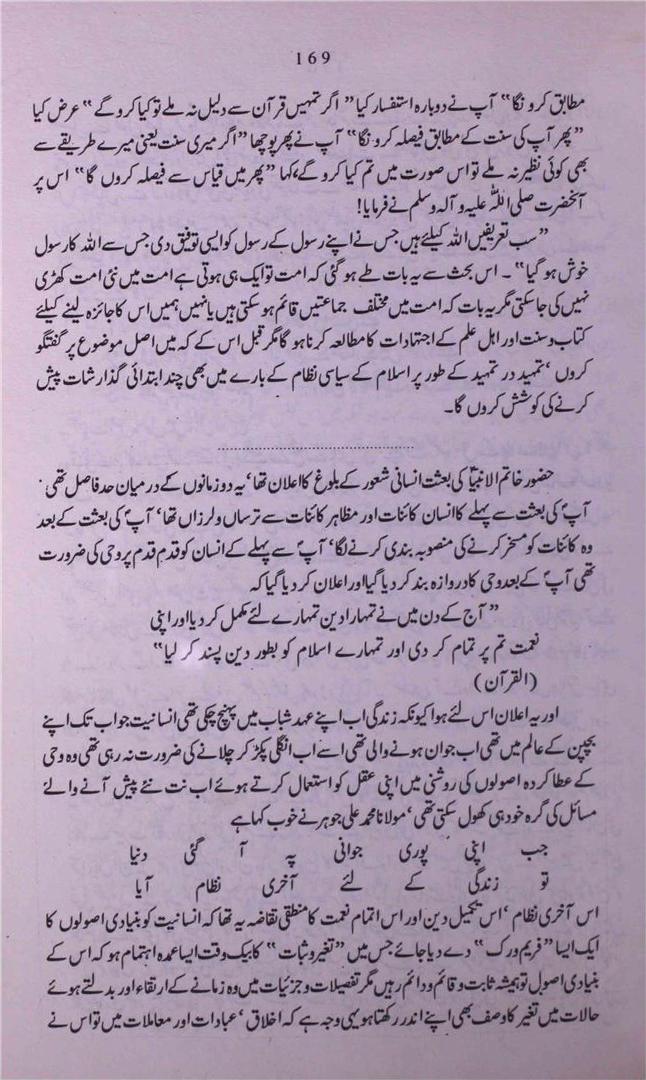 169
مطابق کرونگا“ آپ نے دوبارہ استفسار کیا ”اگر تمہیں قرآن سے دلیل نہ ملے تو کیا کرو گے“ عرض کیا
”پھر آپ کی سنت کے مطابق فیصلہ کرونگا“ آپ نے پھر پوچھا ”اگر میری سنت یعنی میرے طریقے سے
بھی کوئی نظیر نہ ملے تو اس صورت میں تم کیا کرو گے‘ کہا ”پھر میں قیاس سے فیصلہ کروں گا“ اس پر
آنحضرت صلی اللہ علیہ و آلہ وسلم نے فرمایا!
”سب تعریفیں اللہ کیلئے ہیں جس نے اپنے رسول کے رسول کو ایسی توفیق دی جس سے اللہ کا رسول
خوش ہو گیا“۔ اس بحث سے یہ بات طے ہو گئی کہ امت تو ایک ہی ہوتی ہے امت میں نئی امت کھڑی
نہیں کی جا سکتی مگر یہ بات کہ امت میں مختلف جماعتیں قائم ہو سکتی ہیں یا نہیں ہمیں اس کا جائزہ لینے کیلئے
کتاب و سنت اور اہل علم کے اجتہادات کا مطالعہ کرنا ہو گا مگر قبل اس کے کہ میں اصل موضوع پر گفتگو
کروں‘ تمہید در تمہید کے طور پر اسلام کے سیاسی نظام کے بارے میں بھی چند ابتدائی گذارشات پیش
کرنے کی کوشش کروں گا۔
حضور خاتم الانبیاؐ کی بعثت انسانی شعور کے بلوغ کا اعلان تھا‘ یہ دو زمانوں کے درمیان حد فاصل تھی
آپؐ کی بعثت سے پہلے کا انسان کائنات اور مظاہر کائنات سے ترساں و لرزاں تھا‘ آپؐ کی بعثت کے بعد
وہ کائنات کو مسخر کرنے کی منصوبہ بندی کرنے لگا‘ آپؐ سے پہلے کے انسان کو قدم قدم پر وحی کی ضرورت
تھی آپؐ کے بعد وحی کا دروازہ بند کر دیا گیا اور اعلان کر دیا گیا کہ
”آج کے دن میں نے تمہارا دین تمہارے لئے مکمل کر دیا اور اپنی
نعمت تم پر تمام کر دی اور تمہارے اسلام کو بطور دین پسند کر لیا“
(القرآن)
اور یہ اعلان اس لئے ہوا کیونکہ زندگی اب اپنے عہد شباب میں پہنچ چکی تھی انسانیت جو اب تک اپنے
بچپن کے عالم میں تھی اب جوان ہونے والی تھی اسے اب انگلی پکڑ کر چلانے کی ضرورت نہ رہی تھی وہ وحی
کے عطا کردہ اصولوں کی روشنی میں اپنی عقل کو استعمال کرتے ہوئے اب نت نئے پیش آنے والے
مسائل کی گرہ خود ہی کھول سکتی تھی‘ مولانا محمد علی جوہر نے خوب کہا ہے
جب اپنی پوری جوانی پہ آ گئی دنیا
تو زندگی کے لئے آخری نظام آیا
اس آخری نظام‘ اس تکمیل دین اور اس اتمام نعمت کا منطقی تقاضہ یہ تھا کہ انسانیت کو بنیادی اصولوں کا
ایک ایسا ”فریم ورک“ دے دیا جائے جس میں ”تغیر و ثبات“ کا بیک وقت ایسا عمدہ اہتمام ہو کہ اس کے
بنیادی اصول تو ہمیشہ ثابت و قائم و دائم رہیں مگر تفصیلات و جزئیات میں وہ زمانے کے ارتقاء اور بدلتے ہوئے
حالات میں تغیر کا وصف بھی اپنے اندر رکھتا ہو یہی وجہ ہے کہ اخلاق‘ عبادات اور معاملات میں تو اس نے